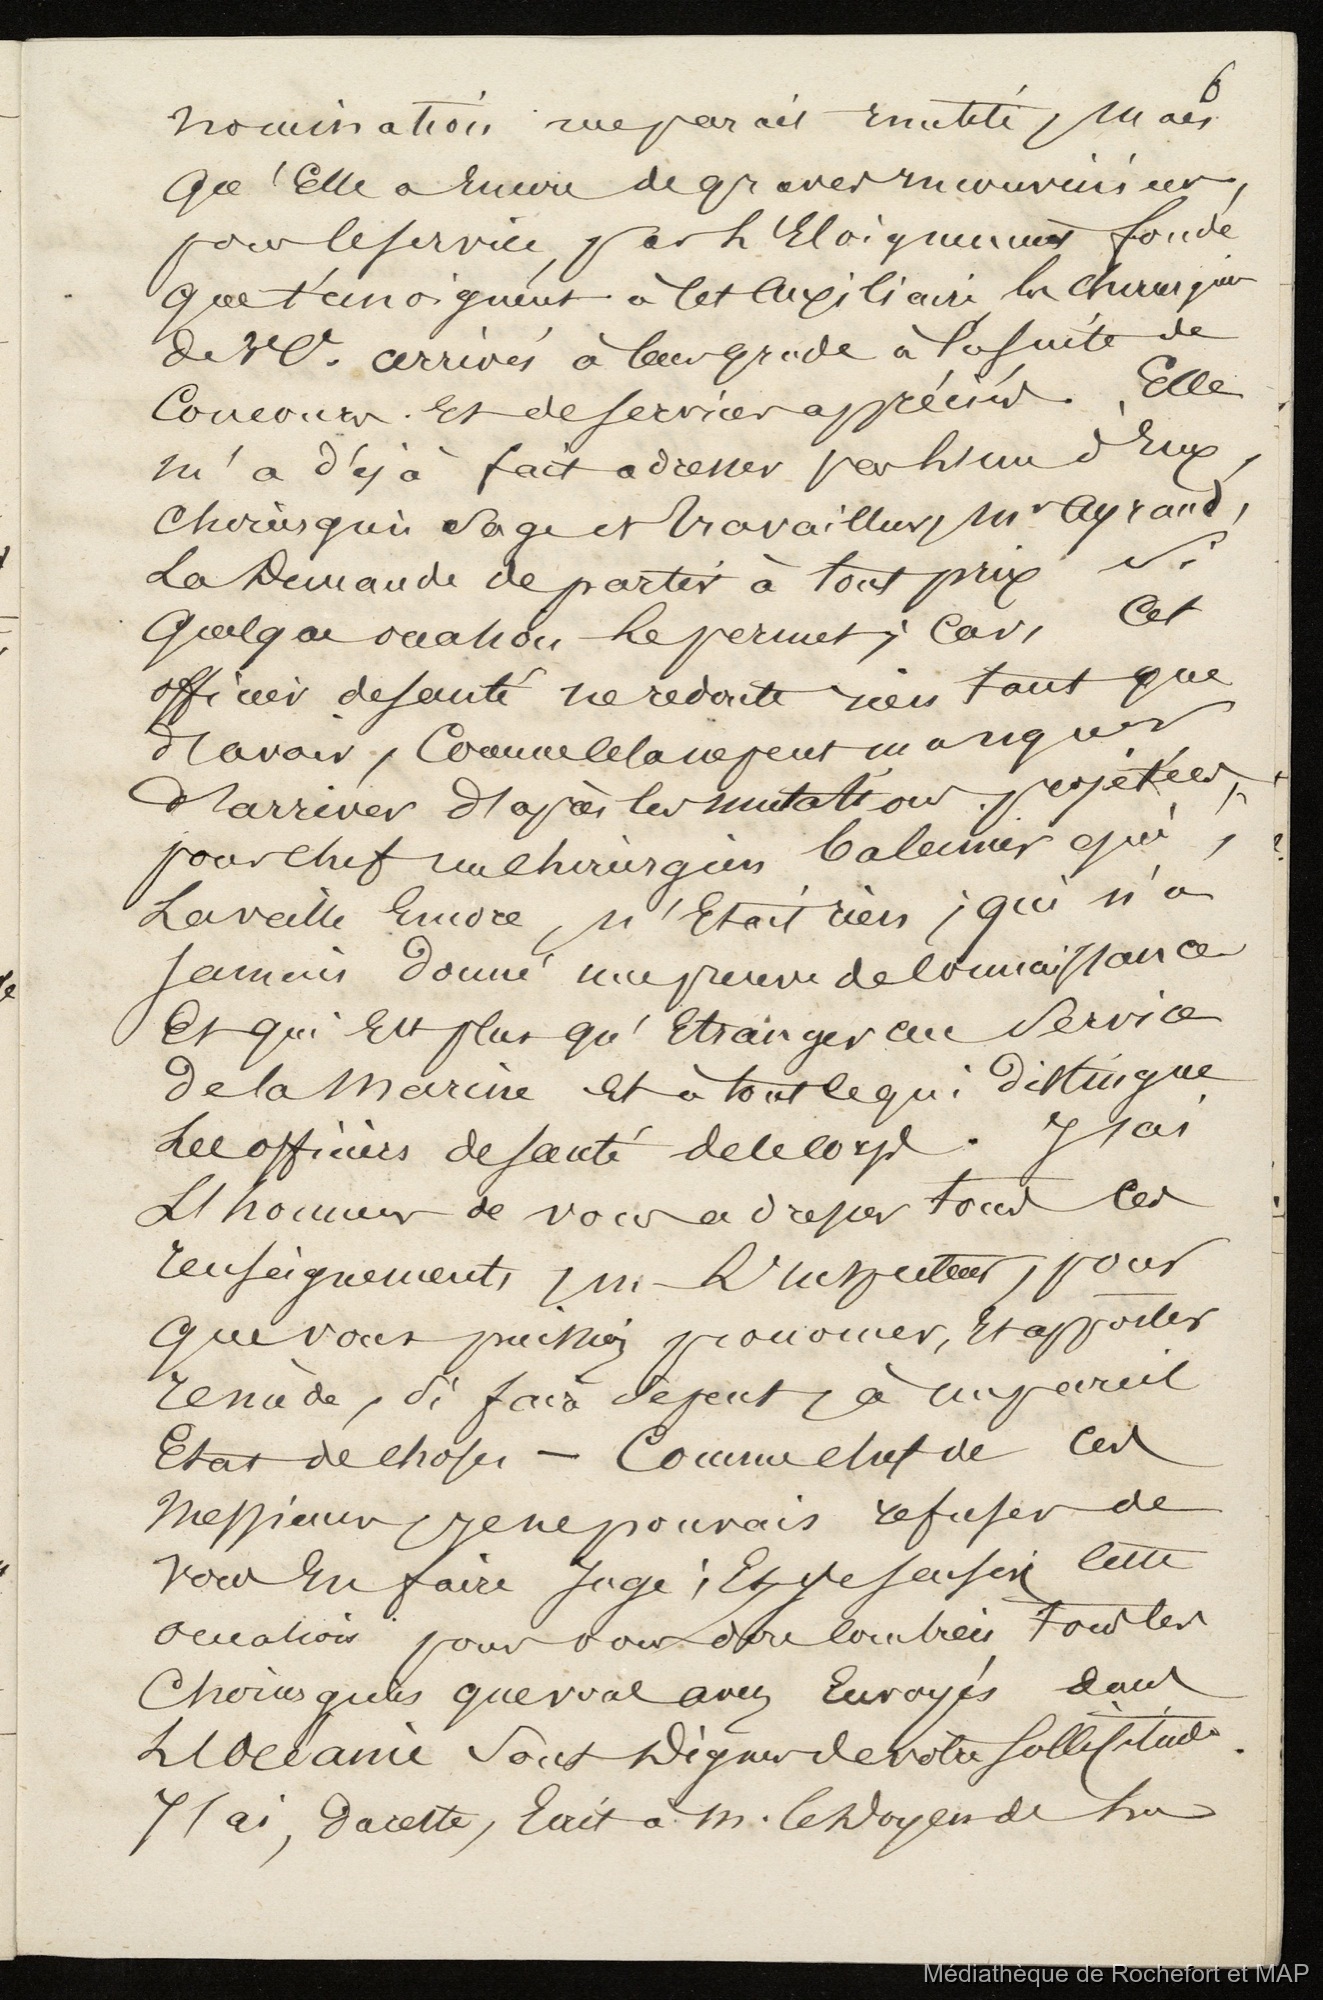 6
nomination me parait inutile, mais
qu'Elle a Encore de graves inconvénients,
pour le service, par l'Eloignement fondé
que témoignent à cet Auxiliaire, les chirurgiens
de 3e Cl. arrivés à leur grade à la suite de
Concours. Et de services appréciés. Elle
m'a déjà fait adresser par l'un d'Eux,
chirurgien sage et travailleur, Mr Ayraud,
La Demande de partir à tout prix si
quelque occasion le permet; car, cet
officier de santé ne redoute rien tant que
d'avoir, Comme cela ne peut manquer
d'arriver d'après les mutations projetées,
pour chef un chirurgien baleinier qui,
La veille Encore, n'Etait rien; qui n'a
jamais donné une preuve de connaissance
Et qui Est plus qu'Etranger au service
De la Marine Et à tout ce qui distingue
Les officiers de santé de ce corps. J'ai
L'honneur de vous adresser tous ces
renseignements, M. L'inspecteur, pour
que vous puissiez prononcer, Et apporter
remède, si faire se peut, à un pareil
Etat de choses — Comme chef de ces
Messieurs, je ne pouvais refuser de
vous En faire juge; Et je saisis cette
occasion pour vous dire combien tous les
Chirurgiens que vous avez Envoyés dans
L'Océanie sont Dignes de votre sollicitude.
J'ai, du reste, Ecrit à M. le Doyen de
Médiathèque de Rochefort et MAP